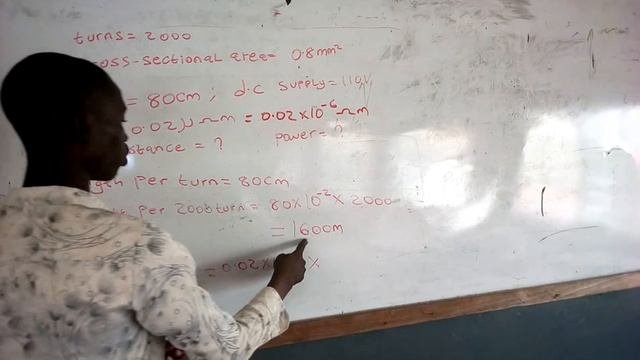 turns = 2000
oss-sectional area = 0.8mm²
= 80cm ; d.c supply = 110V
0.02μΩm = 0.02×10⁻⁶Ωm
stance = ? power = ?
gth per turn = 80cm
per 2000turn = 80×10⁻²×2000 =
= 1600m
= 0.02× ×